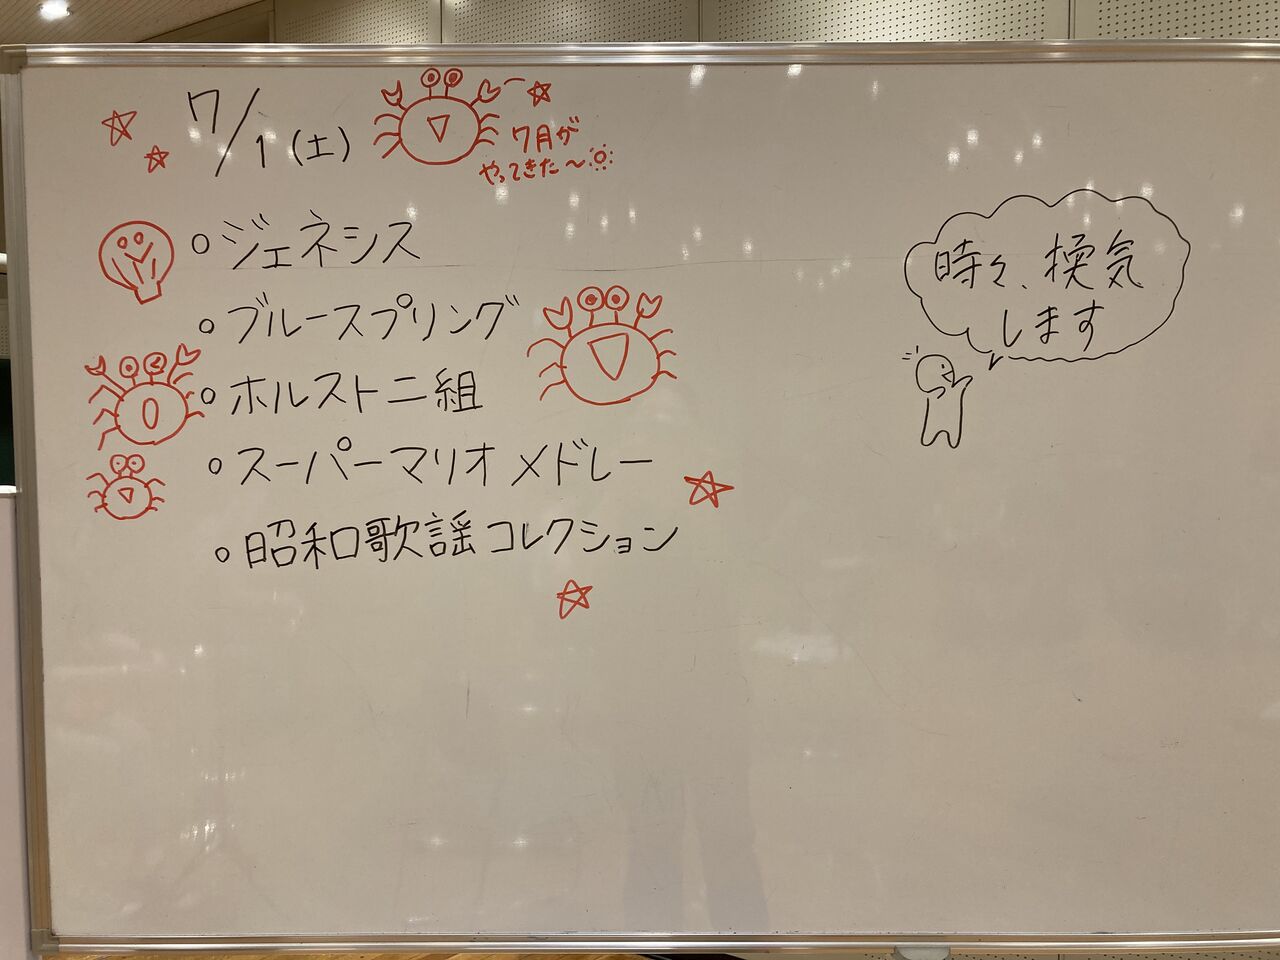 7/1(土)
7月が
やってきた〜
○ジェネシス
○ブルースプリング
○ホルストニ組
○スーパーマリオメドレー
○昭和歌謡コレクション
時々、換気
します